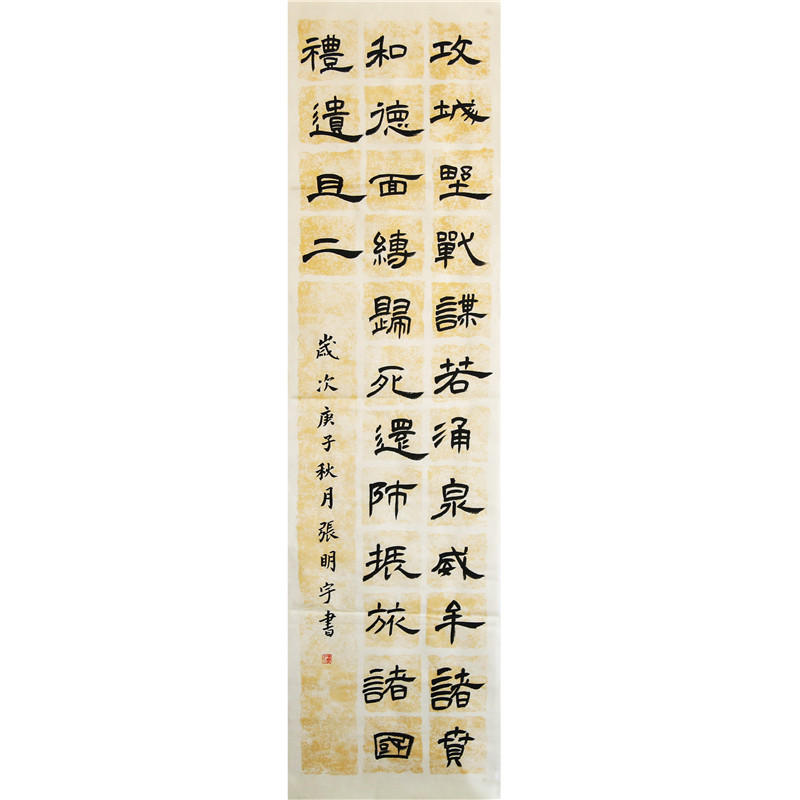 攻城壄戰謀若涌泉威牟諸賁
和德面縛歸死還師振旅諸國
禮遺且二
歲次庚子秋月張明宇書